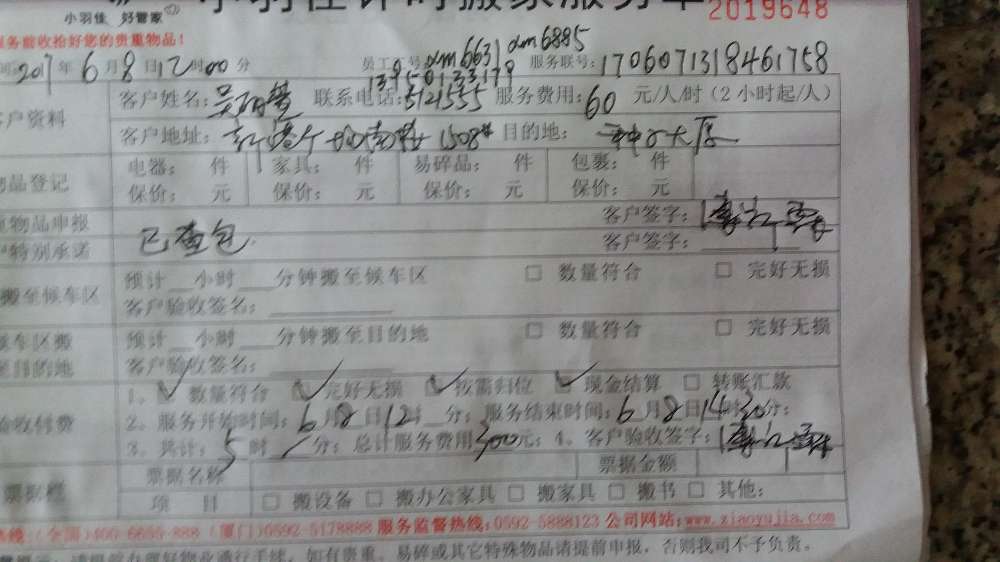 小羽佳 好管家
小羽佳计时搬家服务单 2019648
服务前收拾好您的贵重物品！
2017年6月8日12时00分 员工工号xm6631 xm6885 服务联号:1706071318461758
13950133179
客户资料 客户姓名: 联系电话:5121555 服务费用:60元/人/时(2小时起/人)
客户地址: 1508# 目的地: 大厦
物品登记 电器: 件 家具: 件 易碎品: 件 包裹: 件
保价: 元 保价: 元 保价: 元 保价: 元
物品申报 客户签字:
特别承诺 已查包 客户签字:
搬至候车区 预计__小时__分钟搬至候车区 □ 数量符合 □ 完好无损
客户验收签名:
候车区搬至目的地 预计__小时__分钟搬至目的地 □ 数量符合 □ 完好无损
客户验收签名:
验收付费 1、☑ 数量符合 ☑ 完好无损 ☑ 按需归位 ☑ 现金结算 □ 转账汇款
2、服务开始时间:6月8日12时__分;服务结束时间:6月8日14时30分;
3、共计:5时/分;总计服务费用300元;4、客户验收签字:
票据栏 票据名称 票据金额
项 目 □ 搬设备 □ 搬办公家具 □ 搬家具 □ 搬书 □ 其他:
热线:(全国)400-6655-888 (厦门)0592-5178888 服务监督热线:0592-5888123 公司网站:www.xiaoyujia.com
请提前办理好物业通行手续，如有贵重、易碎或其它特殊物品请提前申报，否则我司不予负责。